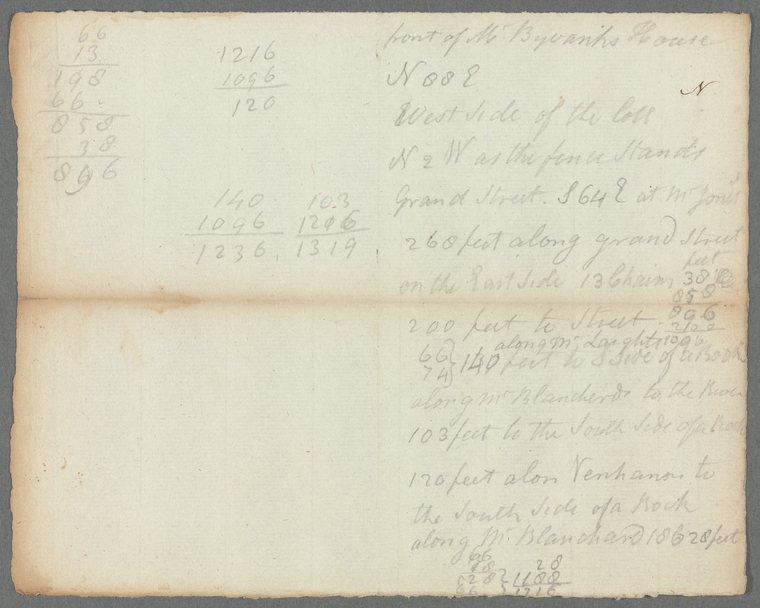 66
13
198
66
858
38
896
1216
1096
120
140
1096
1236
103
1216
1319
front of Mr Byvanks House
N 88 E
N
West Side of the lott
N 2 W as the fence Stands
Grand Street. S 64 E at Mr Jones
268 feet along grand Street
feet
on the East Side 13 Chains 38
858
896
200 feet to Street 200
along Mr Laight 1096
66
74 } 140 feet to S Side of a Rock
along Mr Blancherds to the River
103 feet to the South Side of a Rock
120 feet alon to
the South Side of a Rock
along Mr. Blanchard 18 C 28 feet
66
18
28
528
1188
66
1216